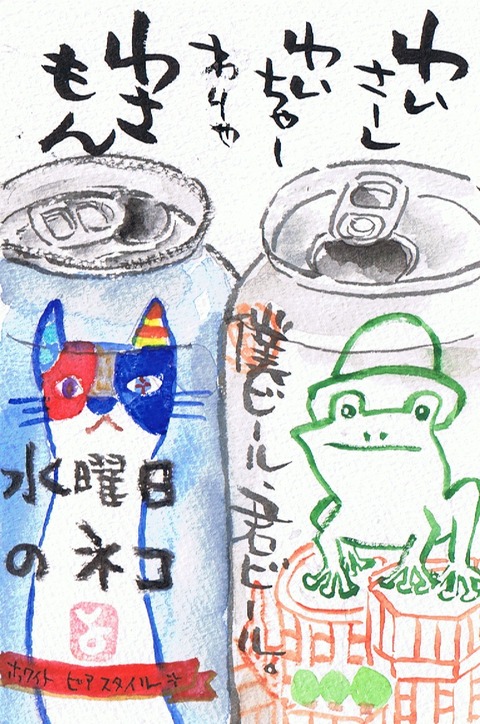 わい
さーし
わい
ちゅー
わりゃ
わさ
もん
僕ビール、君ビール。
水曜日
のネコ
ホワイト ビアスタイル